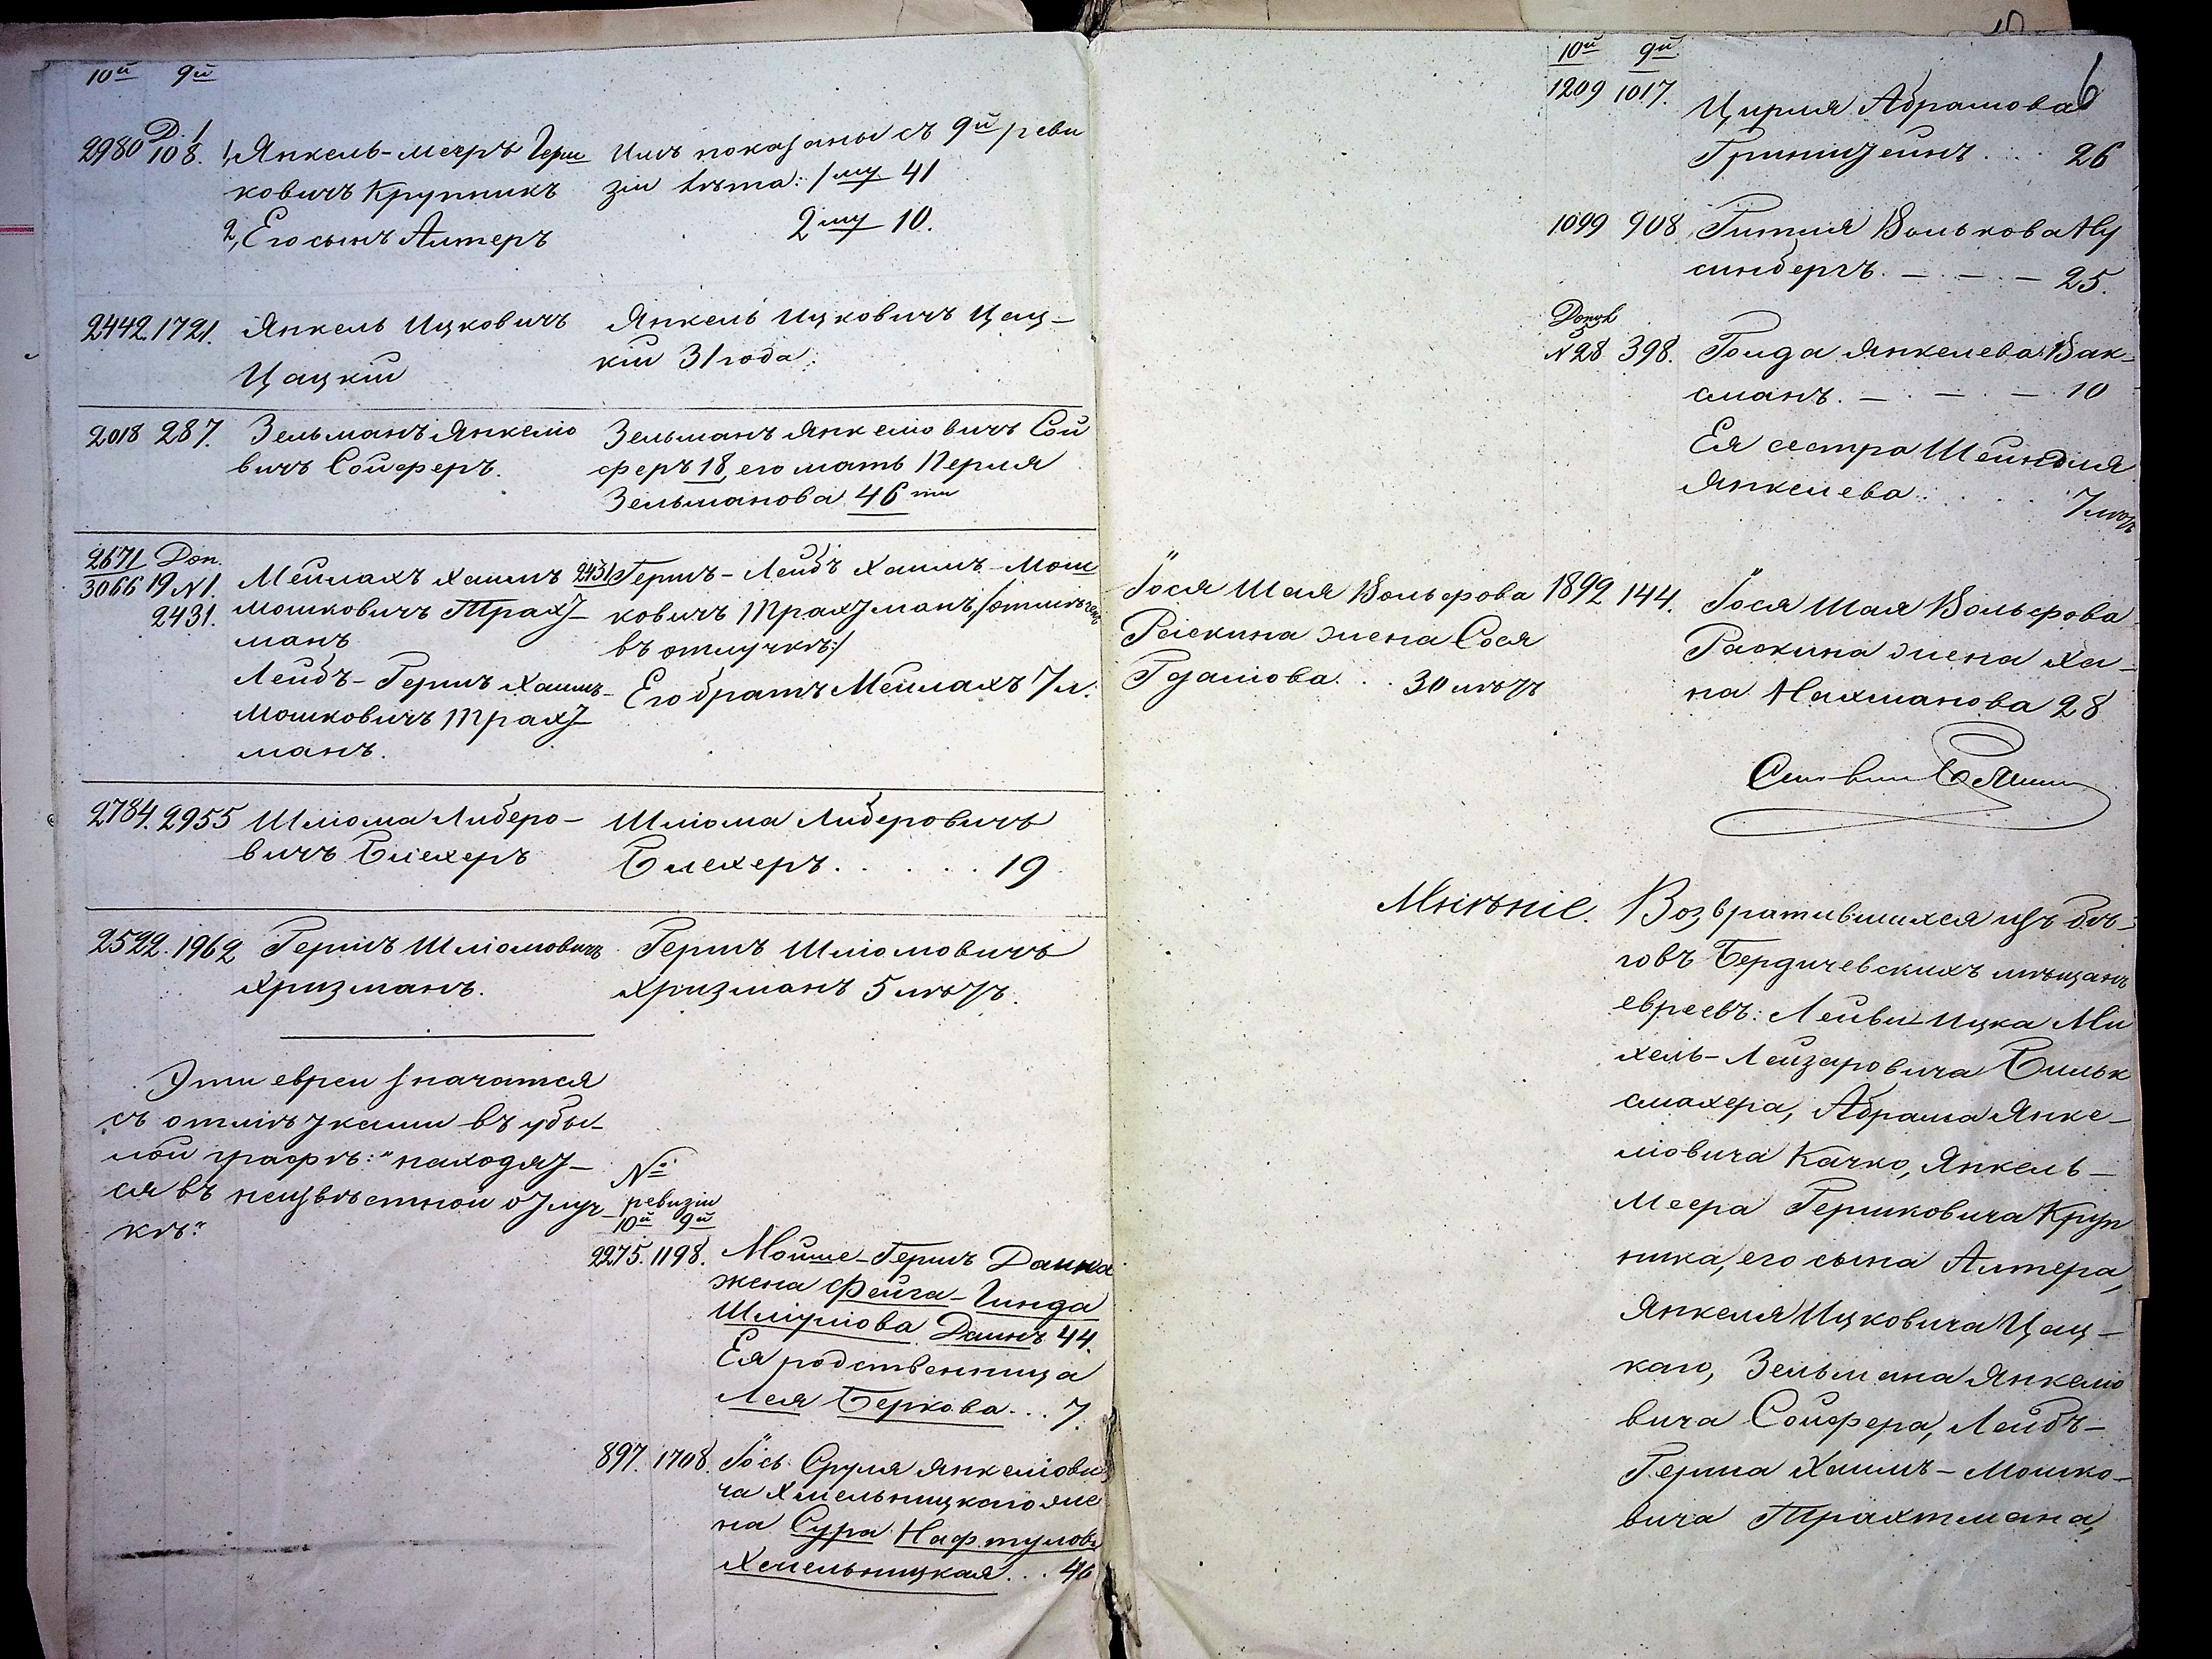 10й 9й
2980 Д. 1/108. 1, Янкель-Мееръ Герш
ковичъ Крупникъ
2, Его сынъ Алтеръ
Имъ показаны съ 9й реви
зіи лѣта: 1му 41
2му 10.
2442. 1721. Янкель Ицковичъ
Цацкій
Янкель Ицковичъ Цац-
кій 31 года.
2018 287. Зельманъ Янкелю
вичъ Сойферъ.
Зельманъ Янкеліовичъ Сой
феръ 18, его мать Перля
Зельманова 46 ти
2671 Доп.
3066 19 N1.
2431.
Мейлахъ Хаимъ
Мошковичъ Трахт-
манъ
Лейбъ-Гершъ Хаимъ-
Мошковичъ Трахт-
манъ.
2431 Гершъ-Лейбъ Хаимъ-Мош
ковичъ Трахтманъ, /отмѣченъ
въ отлучкѣ:/
Его братъ Мейлахъ 7 л.
2784. 2955 Шліома Либеро-
вичъ Блехеръ
Шліома Либеровичъ
Блехеръ. . . . . . 19
2522. 1962 Гершъ Шліомовичъ
Хризманъ.
Гершъ Шліомовичъ
Хризманъ 5 лѣтъ.
Эти евреи значатся
съ отмѣтками въ убы-
лой графѣ: "находят-
ся въ неизвѣстной отлуч-
кѣ."
№
ревизіи
10й 9й
2275. 1198. Мойше-Гершъ Даина
жена Фейга-Гинда
Шмулова Даинъ 44.
Ея родственница
Лея Беркова . . . 7.
897. 1708. Іось Сруля Янкеліови
ча Хмельницкаго же
на Сура Нафтулова
Хмельницкая . . . 46
6
10й 9й
1209 1017. Цирля Абрамова
Гринштейнъ . . . . 26
1099 908. Гитля Волькова Ну
синбергъ. — — — 25.
N28 398. Голда Янкелева Вак-
сманъ. — — — 10
Ея сестра Шейндля
Янкелева . . . . 7 лѣтъ
Іося Шая Вольфова
Раскина жена Сося
Гдалова. . . 30 лѣтъ
1892 144. Іося Шая Вольфова
Раскина жена Ха-
на Нахманова 28
Мнѣніе. Возвратившихся изъ бѣ-
говъ Бердичевскихъ мѣщанъ
евреевъ: Лейви-Ицка Ми
хель-Лейзаровича Бильк
смахера, Абрама Янке-
ліовича Качко, Янкель-
Меера Гершковича Круп
ника, его сына Алтера,
Янкеля Ицковича Цац-
каго, Зельмана Янкеліо
вича Сойфера, Лейбъ-
Герша Хаимъ-Мошко-
вича Трахтмана,